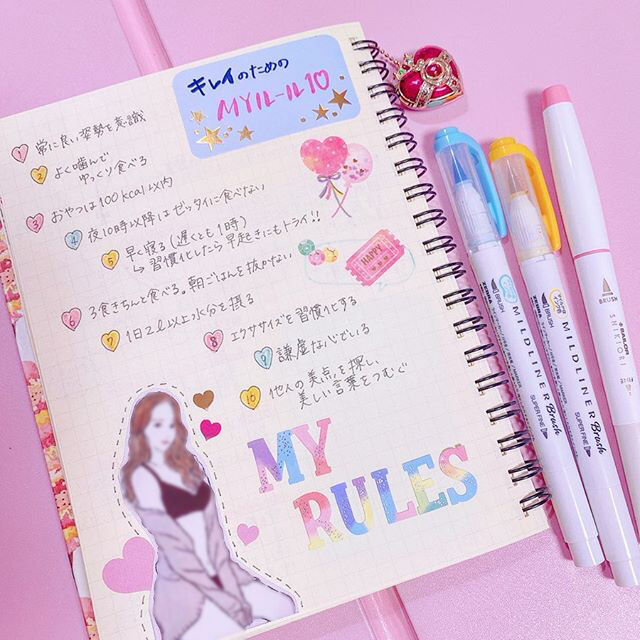 キレイのための
MYルール10♡
1 常に良い姿勢を意識
2 よく噛んで
ゆっくり食べる
3 おやつは100kcal以内
4 夜10時以降はゼッタイに食べない
5 早く寝る(遅くとも1時)
↳習慣化したら早起きにもトライ!!
6 3食きちんと食べる。朝ごはんを抜かない
7 1日2L以上水分を摂る
8 エクササイズを習慣化する
9 謙虚な心でいる
10 他人の美点を探し、
美しい言葉をつむぐ
HAPPY
MY
RULES
ZEBRA BRUSH MILDLINER Brush
SUPER FINE
ZEBRA BRUSH MILDLINER Brush
SUPER FINE
BRUSH
SAILOR
SHIKIORI